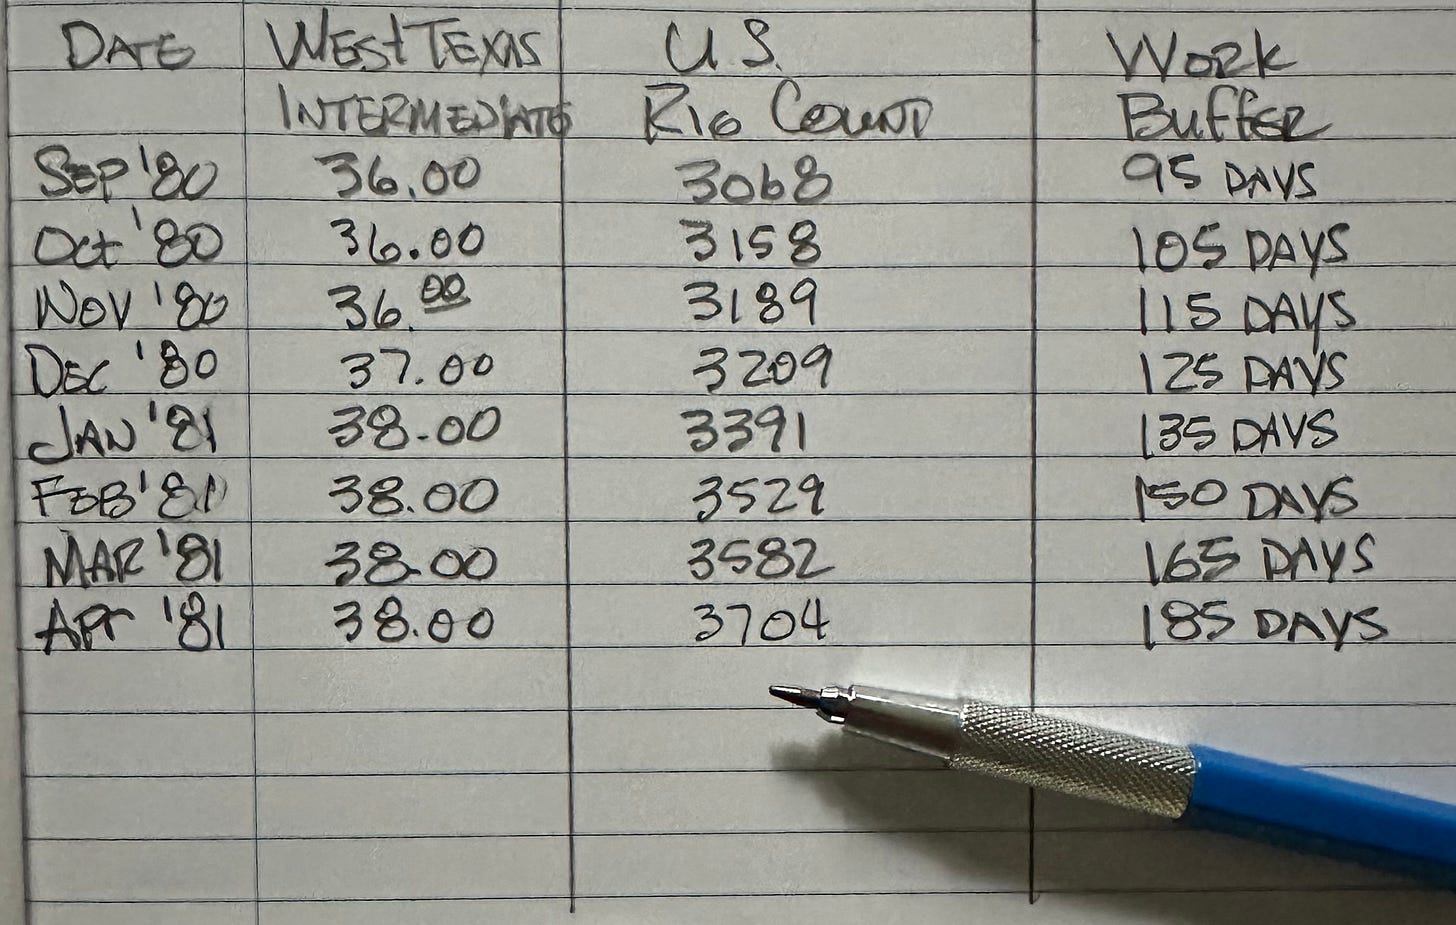 DATE WEST TEXAS U.S. WORK
INTERMEDIATE RIG COUNT BUFFER
SEP '80 36.00 3068 95 DAYS
Oct '80 36.00 3158 105 DAYS
NOV '80 36.00 3189 115 DAYS
DEC '80 37.00 3209 125 DAYS
JAN '81 38.00 3391 135 DAYS
FEB '81 38.00 3529 150 DAYS
MAR '81 38.00 3582 165 DAYS
Apr '81 38.00 3704 185 DAYS